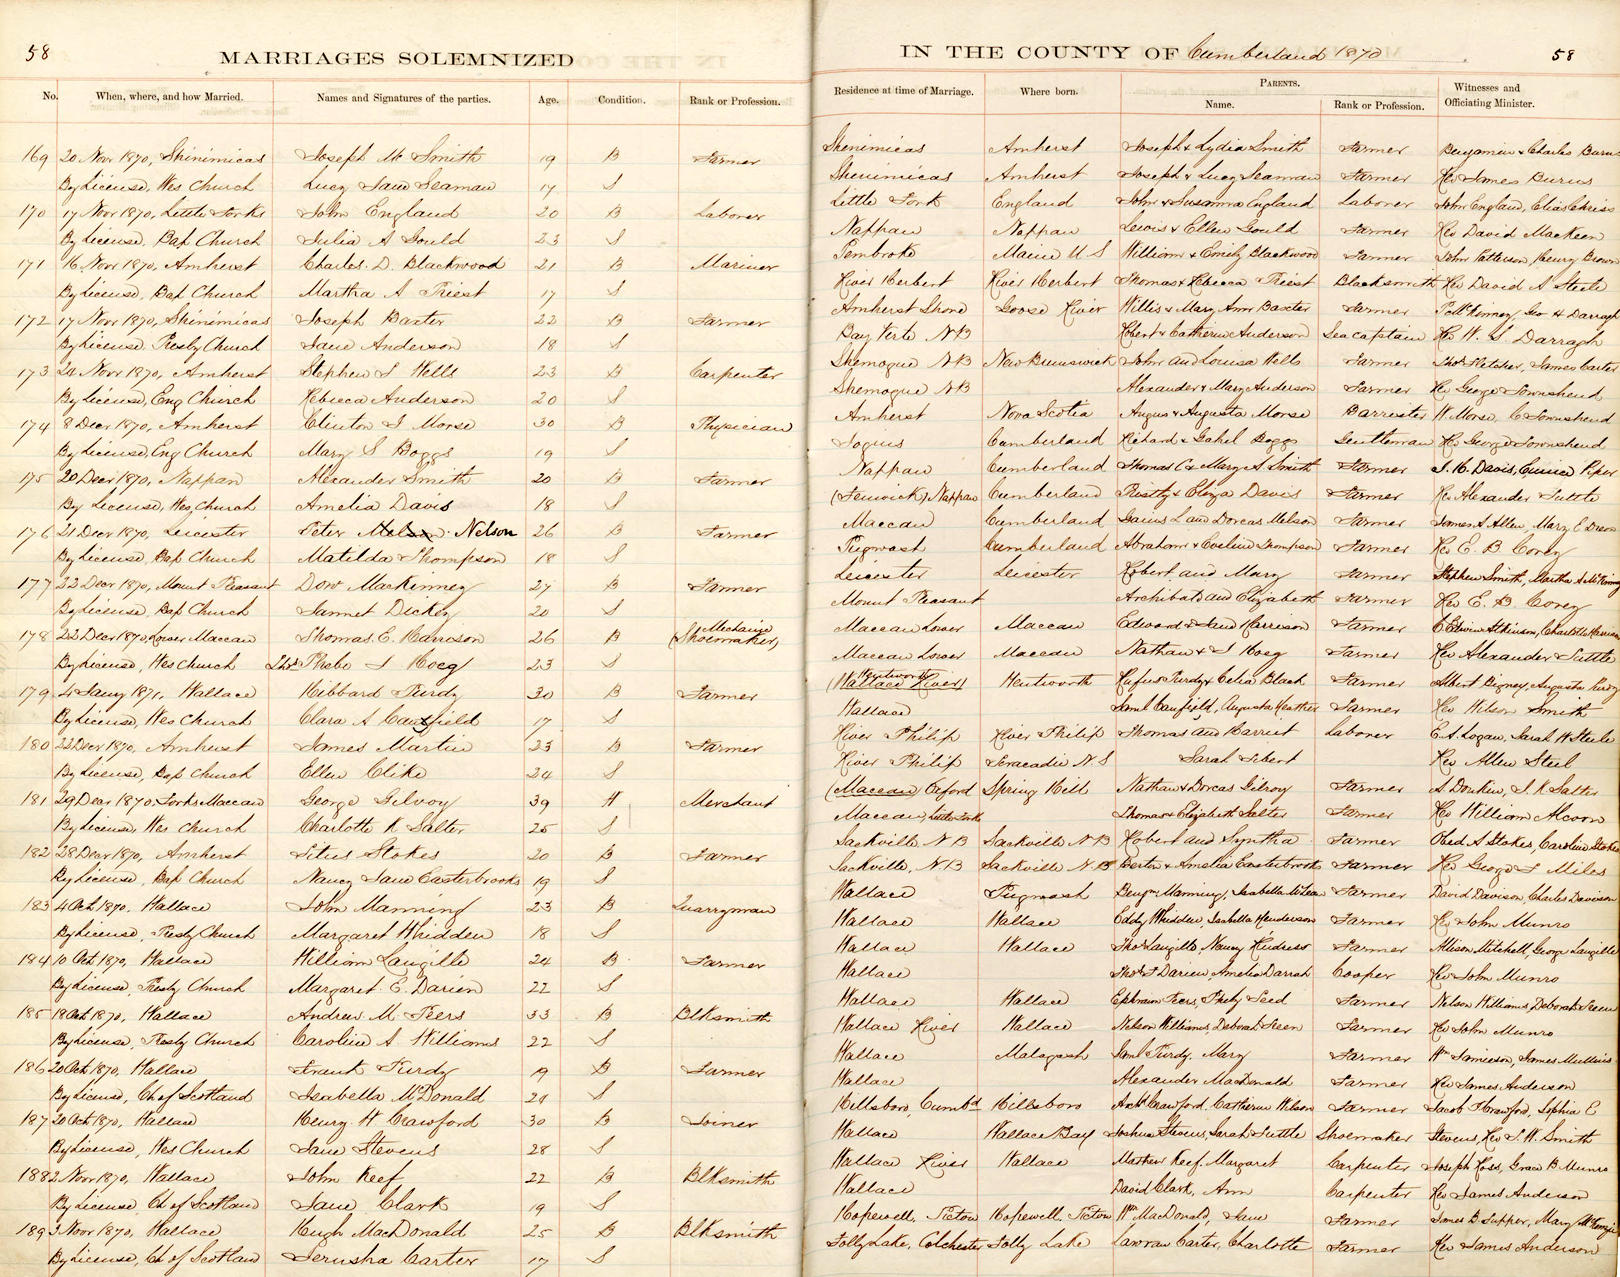 58
MARRIAGES SOLEMNIZED
No. When, where, and how Married. Names and Signatures of the parties. Age. Condition. Rank or Profession.
169 20 Novr 1870, Shinimicas Joseph Mc Smith 19 B Farmer
By License, Wes Church Lucy Jane Seaman 17 S
170 17 Novr 1870, Little Forks John England 20 B Laborer
By License, Bap Church Julia A Gould 23 S
171 16 Novr 1870, Amherst Charles. D. Blackwood 21 B Mariner
By License, Bap Church Martha A Priest 17 S
172 17 Novr 1870, Shinimicas Joseph Baxter 22 B Farmer
By License, Presby Church Jane Anderson 18 S
173 Novr 1870, Amherst Stephen S Wells 23 B Carpenter
By License, Eng Church Rebecca Anderson 20 S
174 8 Decr 1870, Amherst Clinton J Morse 30 B Physician
By License, Eng Church Mary S Boggs 19 S
175 20 Decr 1870, Nappan Alexander Smith 20 B Farmer
By License, Wes, Church Amelia Davis 18 S
176 21 Decr 1870, Leicester Peter Nelson 26 B Farmer
By License, Bap Church Matilda Thompson 18 S
177 22 Decr 1870, Mount Pleasant Dow MacKenney 27 B Farmer
By License, Bap Church Jannet Dickey 20 S
178 22 Decr 1870, Lower Maccan Thomas. E. Harrison 26 B Mechanic (Shoemaker)
By License, Wes Church Phebe J Hoeg 23 S
179 4 Jany 1871, Wallace Hibbard Purdy 30 B Farmer
By License, Wes Church Clara A Canfield 17 S
180 22 Decr 1870, Amherst James Martin 23 B Farmer
By License, Bap Church Ellen Clike 24 S
181 29 Decr 1870, Forks Maccan George Gilroy 39 Merchant
By License, Wes Church Charlotte R Salter 25 S
182 28 Decr 1870, Amherst Titus Stokes 20 B Farmer
By License, Bap Church Nancy Jane Easterbrooks 19 S
183 4 Oct 1870, Wallace John Manning 23 B Quarryman
By License, Presby Church Margaret Whidden 18 S
184 10 Oct. 1870, Wallace William Langille 24 B Farmer
By License, Presby Church Margaret. E. Darien 22 S
185 18 Oct 1870, Wallace Andrew M Peers 33 B Blksmith
By License, Presby Church Caroline A Williams 22 S
186 20 Oct 1870, Wallace Frank Purdy 19 B Farmer
By License, Ch of Scotland Isabella McDonald 21 S
187 20 Oct 1870, Wallace Henry H Crawford 30 B Joiner
By License, Wes Church Jane Stevens 28 S
188 2 Novr 1870, Wallace John Keef 22 B Blksmith
By License, Ch of Scotland Jane Clark 19 S
189 3 Novr 1870, Wallace Hugh MacDonald 25 B Blksmith
By License, Ch of Scotland Jerusha Carter 17 S
IN THE COUNTY OF Cumberland 1870 58
Residence at time of Marriage. Where born. PARENTS. Name. Rank or Profession. Witnesses and Officiating Minister.
Shinimicas Amherst Joseph & Lydia Smith Farmer Benjamin & Charles Burns
Shinimicas Amherst Joseph & Lucy Seaman Farmer Rev James Burns
Little Fork England John & Susanna England Laborer John England, Elias
Nappan Nappan Lewis & Ellen Gould Farmer Rev David MacKeen
Pembroke Maine U S William & Emily Blackwood Farmer John Patterson, Henry Brown
River Herbert River Herbert Thomas & Rebecca Priest Blacksmith Rev David A Steele
Amherst Shore Goose River Willis & Mary Ann Baxter Farmer Geo H Darragh
Bay Verte N B Robert & Catherine Anderson Sea captain Rev W. S. Darragh
Shemogue N B New Brunswick John and Louisa Wells Farmer Thos Fletcher, James Carter
Shemogue N B Alexander & Mary Anderson Farmer Rev George Townshend
Amherst Nova Scotia Angus & Augusta Morse Barrester W Morse, C Townshend
Joguis Cumberland Richard & Boggs Gentleman Rev George Townshend
Nappan Cumberland Thomas C & Mary A Smith Farmer J. H. Davis, Eunice Piper
(Fenwick) Nappan Cumberland & Eliza Davis Farmer Rev Alexander Tuttle
Maccan Cumberland Gaius L and Dorcas Melson Farmer James A Allen, Mary E
Pugwash Cumberland Abraham & Eveline Thompson Farmer Rev E. B Corey
Leicester Leicester Robert and Mary Farmer Stephen Smith, Martha A McKinney
Mount Pleasant Archibald and Elizabeth Farmer Rev E. B. Corey
Maccan Lower Maccan Edward & Jane Harrison Farmer Edwin Atkinson, Charlotte Harrison
Maccan Lower Maccan Nathan & J Hoeg Farmer Rev Alexander Tuttle
Wentworth (Wallace River) Wentworth Rufus Purdy & Celia Black Farmer Albert Bigney, Augusta Purdy
Wallace Saml Canfield, Augusta Heather Farmer Rev Wilson Smith
River Philip River Philip Thomas and Harriet Laborer E. A. Logan, Sarah W Steele
River Philip Tracadie N S Sarah Rev Allen Steel
(Maccan) Oxford Spring Hill Nathan & Dorcas Gilroy Farmer A Donkin, J. R Salter
Maccan, Little Forks Thomas & Elizabeth Salter Farmer Rev William Alcorn
Sackville N B Sackville N B Robert and Syntha Farmer Obed A Stokes, Caroline Stokes
Sackville, N B Sackville N B & Amelia Easterbrooks Farmer Rev George F Miles
Wallace Pugwash Benjn Manning, Isabella Farmer David Davison, Charles Davison
Wallace Wallace Eddy Whidden, Isabella Henderson Farmer Rev John Munro
Wallace Wallace Thos Langille, Nancy Farmer Allison Mitchell, George Langille
Wallace Thos F Darien, Amelia Darrah Cooper Rev John Munro
Wallace Wallace Ephraim Peers, Pheby Seed Farmer Nelson Williams, Deborah
Wallace River Wallace Nelson Williams, Deborah Farmer Rev John Munro
Wallace Malagash Saml Purdy, Mary Farmer Wm Jamieson, James
Wallace Alexander MacDonald Farmer Rev James Anderson
Hillsboro, Cumbd Hillsboro Archd Crawford, Catherine Wilson Farmer Jacob Crawford, Sophia E
Wallace Wallace Bay Joshua Stevens, Sarah Tuttle Shoemaker Stevens, Rev J. W. Smith
Wallace River Wallace Mathew Keef, Margaret Carpenter Joseph Ross, Grace B Munro
Wallace David Clark, Ann Carpenter Rev James Anderson
Hopewell, Pictou Hopewell, Pictou Wm MacDonald, Jane Farmer James B Tupper, Mary
Folly Lake, Colchester Folly Lake Carter, Charlotte Farmer Rev James Anderson